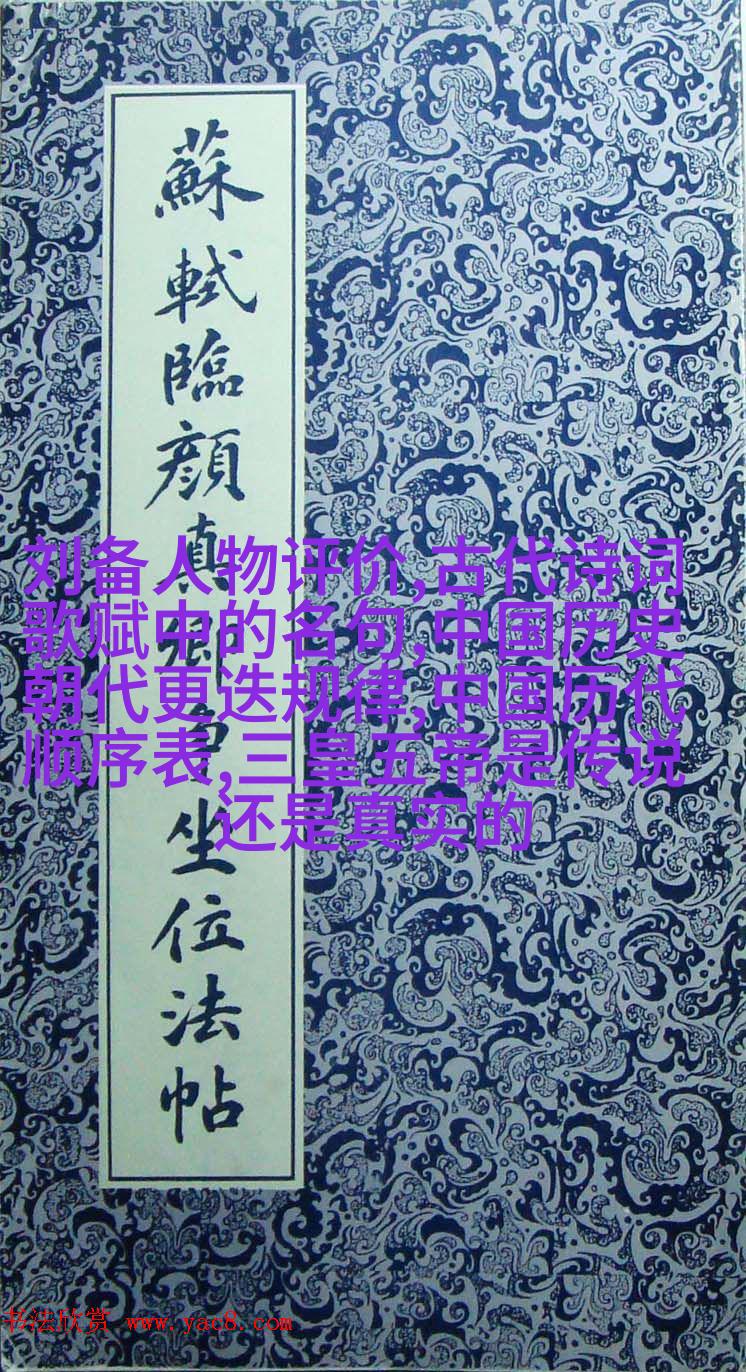 蘇軾臨顔真卿争坐位法帖
刘备人物评价,古代诗词
歌赋中的名句,中国历史
朝代更迭规律,中国历代
顺序表,三皇五帝是传说
还是真实的
书法欣赏 www.yac8.com